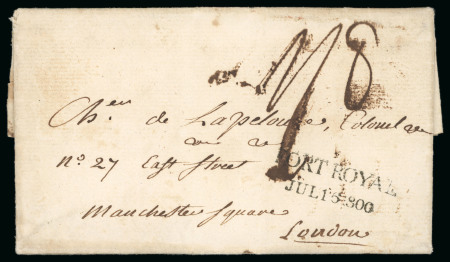 1/8
Ch.er de Lapelouze, Colonel
n.o 27 East Street
PORT ROYAL
JUL 15 800
Manchester Square
London